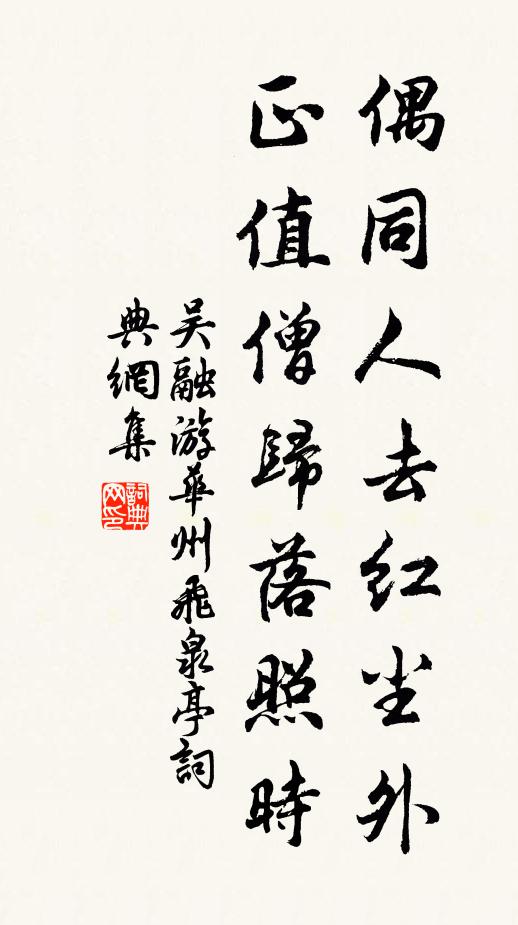 偶同人去红尘外
正值僧歸落照時
吴融游華州飛泉亭詞
典網集
詞典网印